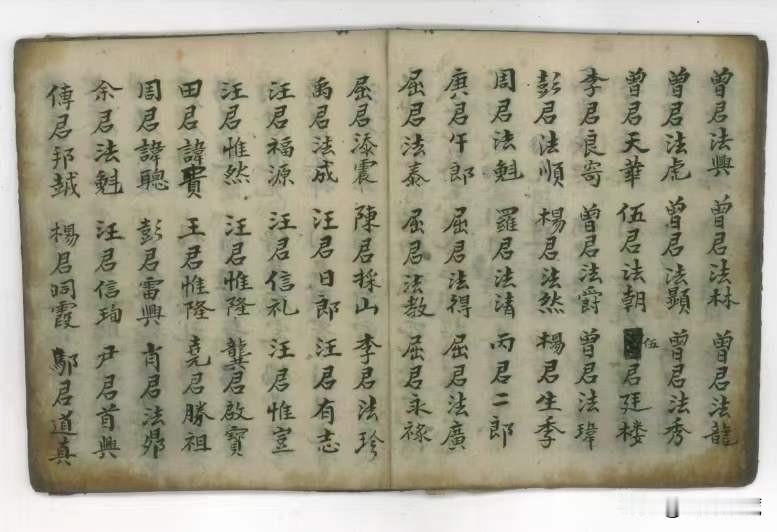 曾君法興 曾君法林 曾君法龍
曾君法虎 曾君法顯 曾君法秀
曾君天華 伍君法朝 伍君廷楼
李君良寄 曾君法爵 曾君法瑋
彭君法順 楊君法然 楊君生季
周君法魁 羅君法清 丙君二郎
庚君午郎 屈君法得 屈君法廣
屈君法泰 屈君法教 屈君永祿
屈君添震 陳君採山 李君法珍
禹君法成 汪君日郎 汪君有志
汪君福源 汪君信礼 汪君惟豈
汪君惟然 汪君惟隆 龔君啟寶
田君諱貴 王君惟隆 堯君勝祖
周君諱聰 彭君雷興 肖君法鼎
余君法魁 汪君信珣 尹君首興
傅君邦越 楊君呞霞 鄔君道真